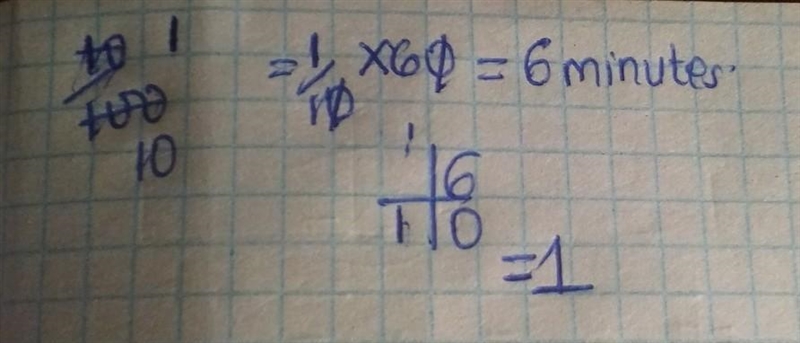 10/100 1/10 = 1/10 × 60 = 6 minutes.
1
6
1 0
= 1